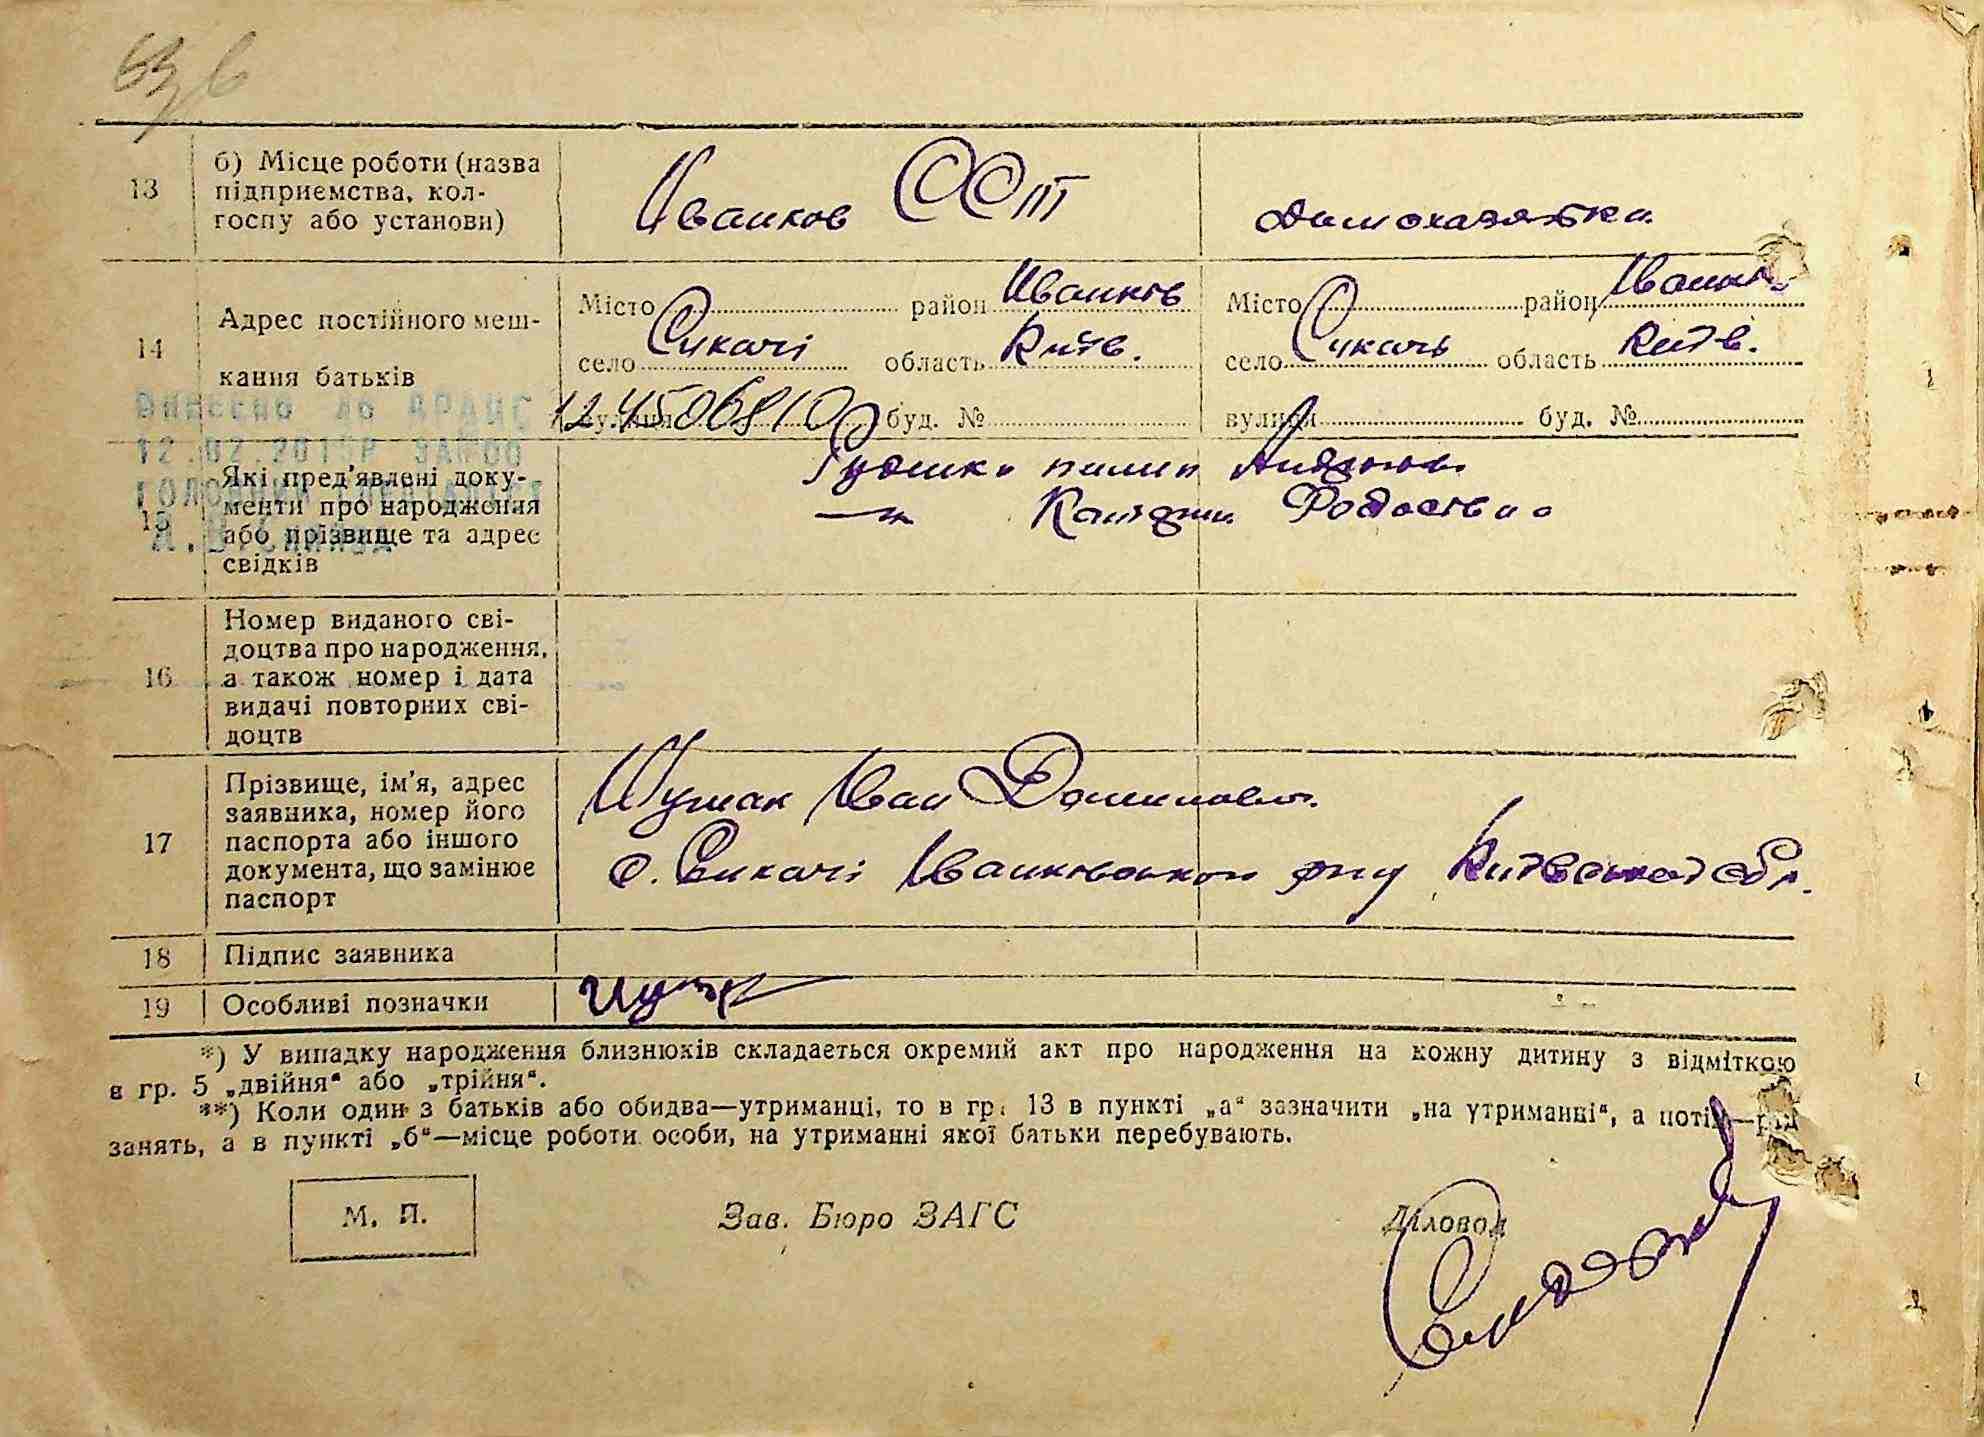 13
б) Місце роботи (назва
підприємства, кол-
госпу або установи)
Иванков ССТ
домохазяйка
14
Адрес постійного меш-
кання батьків
Місто район Иванків
село Сукачі область Київ.
вулиця буд. №
Місто район Иванк.
село Сукачь область Київ.
вулиця буд. №
1245068100
ВНЕСЕНО ДО ДРАЦС
12.02.2015Р ЗАГОО
ГОЛОВНИЙ СПЕЦІАЛІСТ
15
Які пред'явлені доку-
менти про народження
або прізвище та адрес
свідків
16
Номер виданого сві-
доцтва про народження,
а також номер і дата
видачі повторних сві-
доцтв
17
Прізвище, ім'я, адрес
заявника, номер його
паспорта або іншого
документа, що замінює
паспорт
Иван
с. Сукачі Иванківського р-ну Київської обл.
18
Підпис заявника
19
Особливі позначки
*) У випадку народження близнюків складається окремий акт про народження на кожну дитину з відміткою
в гр. 5 „двійня“ або „трійня“.
**) Коли один з батьків або обидва—утриманці, то в гр. 13 в пункті „а“ зазначити „на утриманні“, а потім—рід
занять, а в пункті „б“—місце роботи особи, на утриманні якої батьки перебувають.
М. П.
Зав. Бюро ЗАГС
Діловод